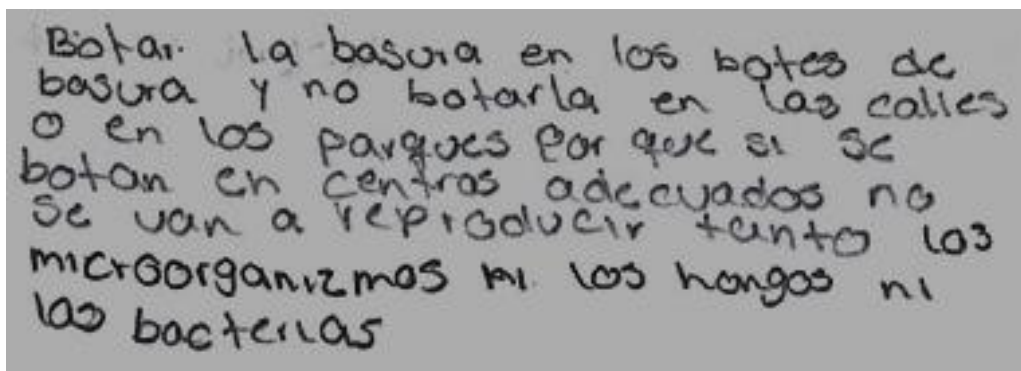 Botar. la basura en los botes de
basura y no botarla en las calles
o en los parques Por que si se
botan en centros adecuados no
se van a reproducir tanto los
microorganizmos ni los hongos ni
las bacterias